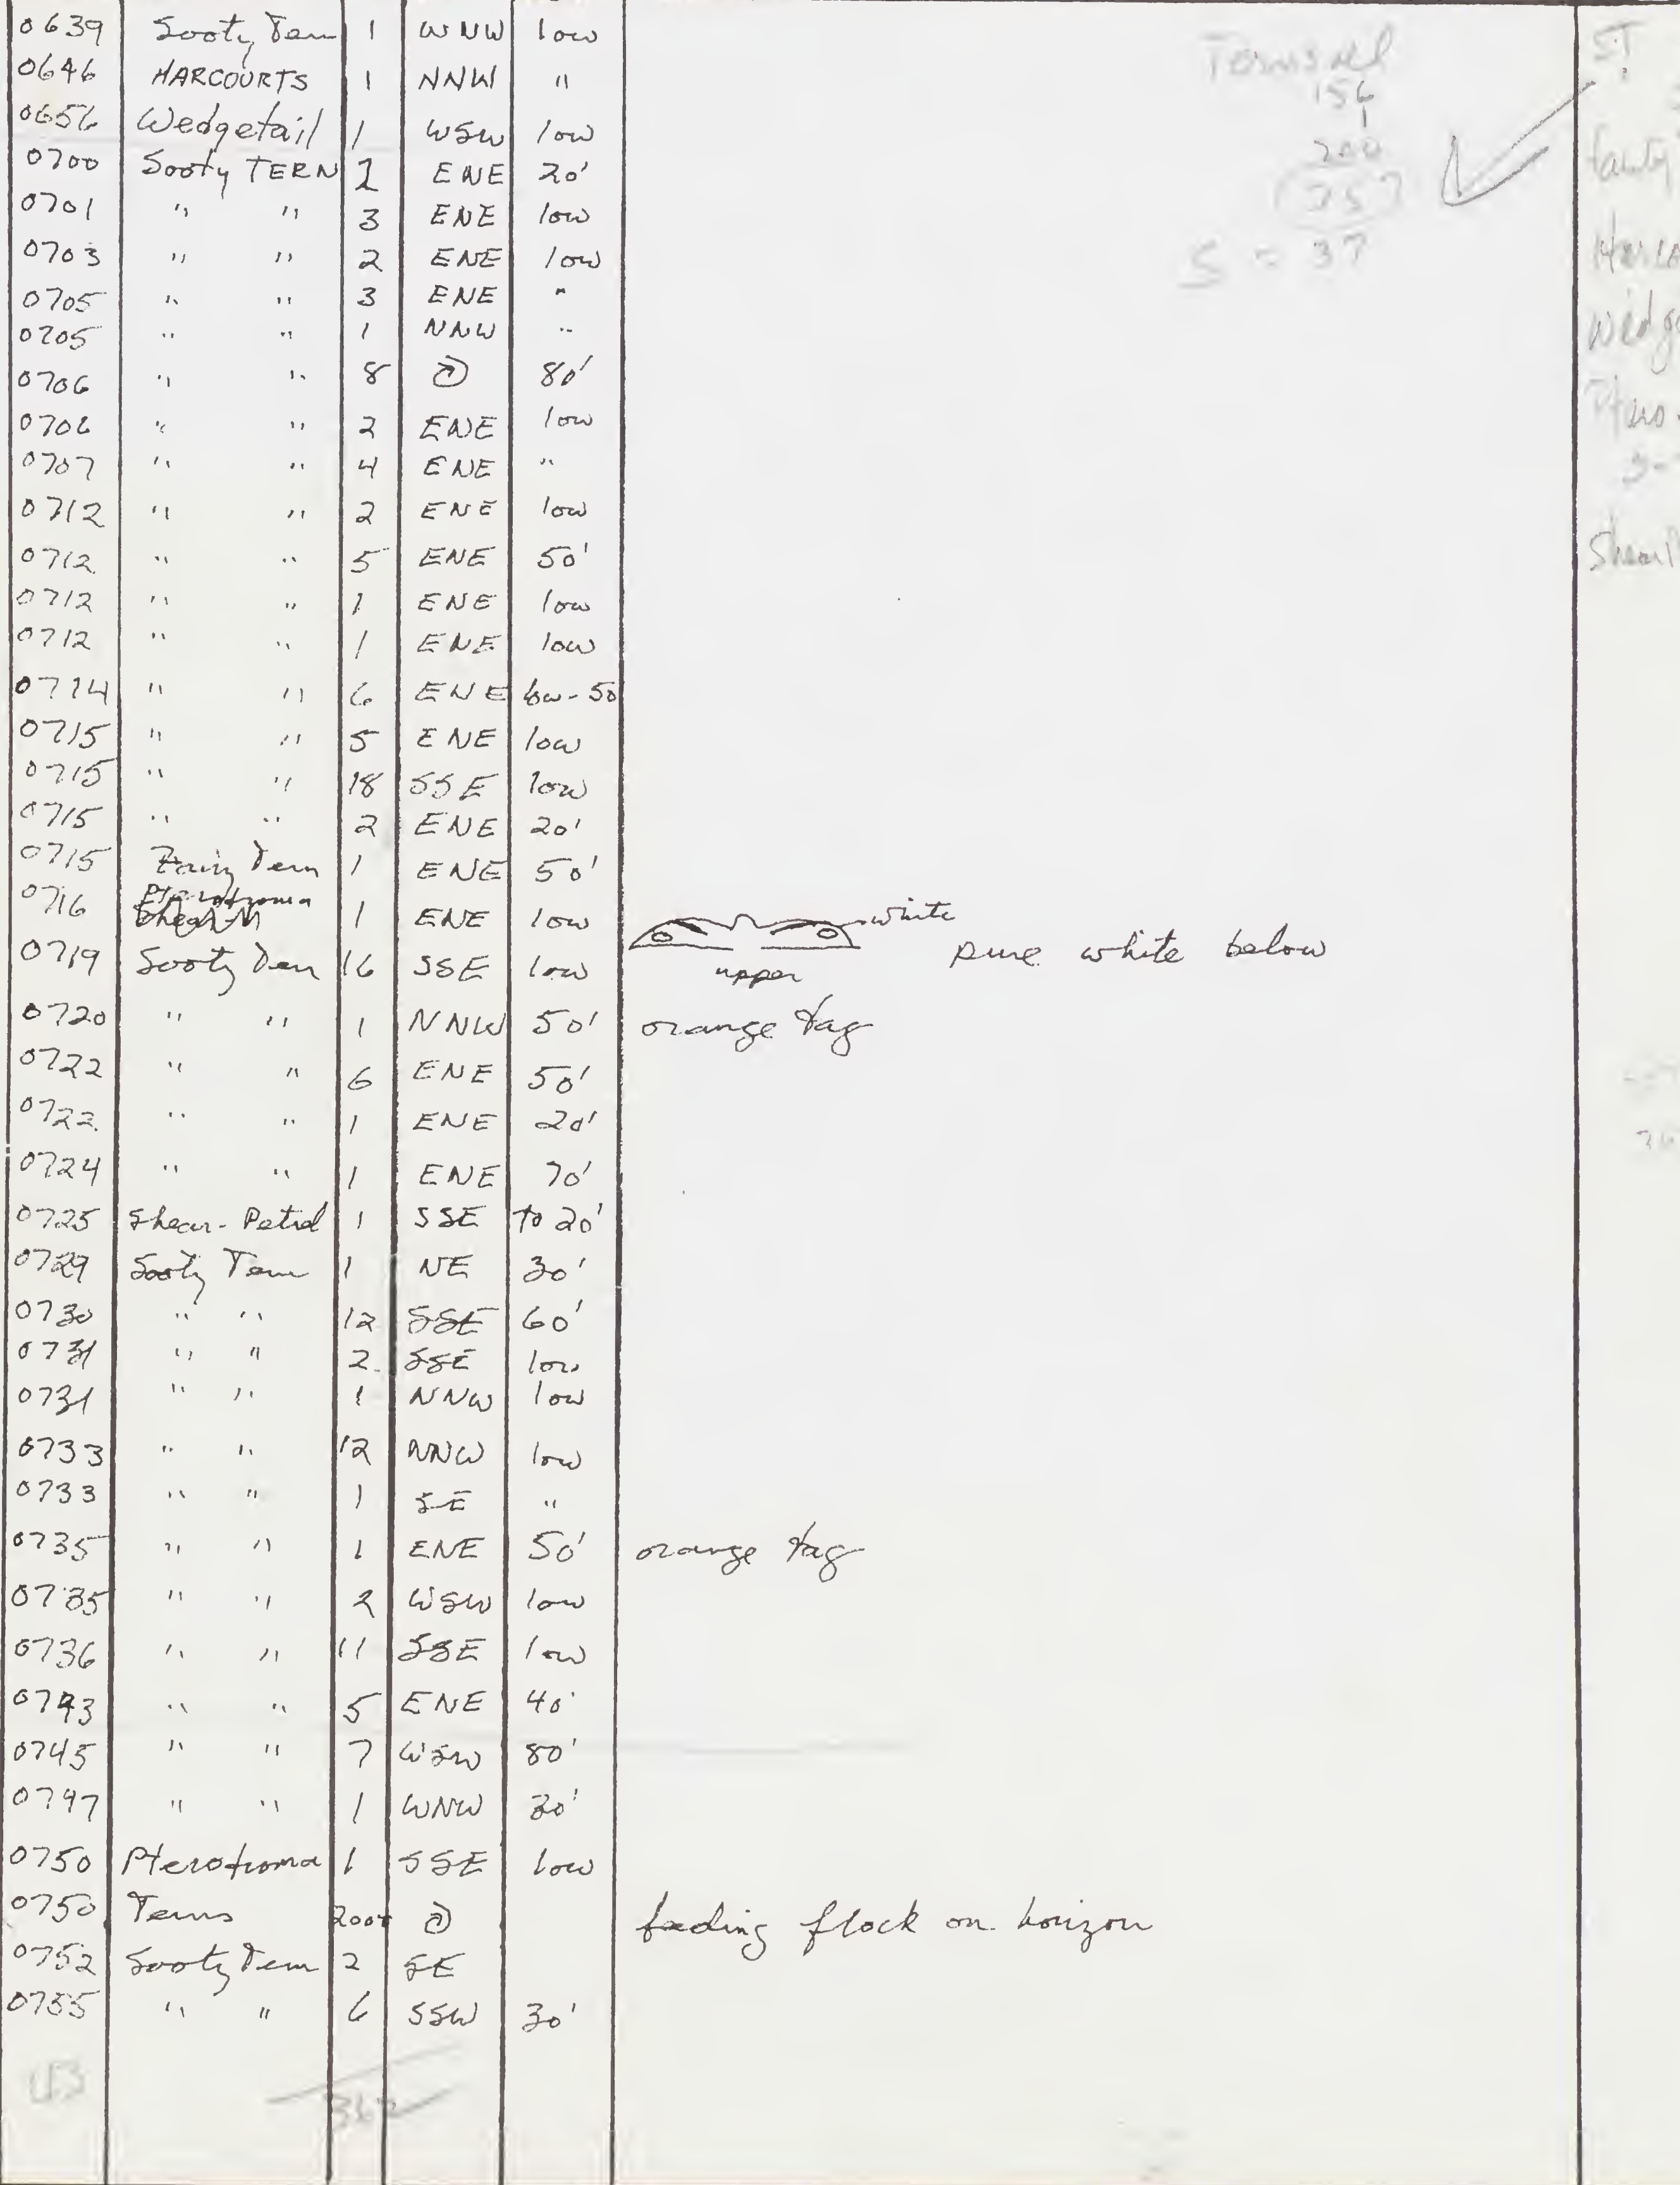 0639 Sooty Tern 1 WNW low
0646 HARCOURTS 1 NNW "
0656 Wedgetail 1 WSW low
0700 Sooty TERN 2 ENE 20'
0701 " " 3 ENE low
0703 " " 2 ENE low
0705 " " 3 ENE "
0705 " " 1 NNW "
0706 " " 8 80'
0706 " " 2 ENE low
0707 " " 4 ENE "
0712 " " 2 ENE low
0712 " " 5 ENE 50'
0712 " " 1 ENE low
0712 " " 1 ENE low
0714 " " 6 ENE low-50
0715 " " 5 ENE low
0715 " " 18 SSE low
0715 " " 2 ENE 20'
0715 Fairy Tern 1 ENE 50'
0716 Pterodroma 1 ENE low white
upper pure white below
0719 Sooty Tern 16 SSE low
0720 " " 1 NNW 50' orange tag
0722 " " 6 ENE 50'
0722 " " 1 ENE 20'
0724 " " 1 ENE 70'
0725 Shear-Petrel 1 SSE to 20'
0729 Sooty Tern 1 NE 30'
0730 " " 12 SSE 60'
0731 " " 2 SSE low
0731 " " 1 NNW low
0733 " " 12 NNW low
0733 " " 1 SE "
0735 " " 1 ENE 50' orange tag
0735 " " 2 WSW low
0736 " " 11 SSE low
0743 " " 5 ENE 40'
0745 " " 7 WSW 80'
0747 " " 1 WNW 30'
0750 Pterodroma 1 SSE low
0750 Terns 200+ feeding flock on horizon
0752 Sooty Tern 2 SE
0755 " " 6 SSW 30'
43
362
200
S = 37
ST
Wedge
Shear